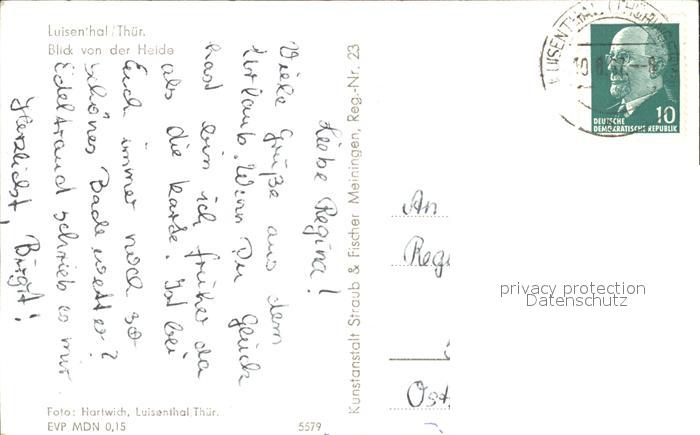 Luisenthal/Thür.
Blick von der Heide
Liebe Regina!
Viele Grüße aus dem
Urlaub. Wenn Du Glück
hast bin ich früher da
als die Karte. Ist bei
Euch immer noch so
schönes Badewetter?
Edeltraud schrieb es mir
Herzlichst, Birgit!
Foto: Hartwich, Luisenthal/Thür.
EVP MDN 0,15
5579
Kunstanstalt Straub & Fischer Meiningen, Reg.-Nr. 23
LUISENTHAL (THÜRINGEN)
10
DEUTSCHE
DEMOKRATISCHE REPUBLIK
An
Regi
Ost
privacy protection
Datenschutz